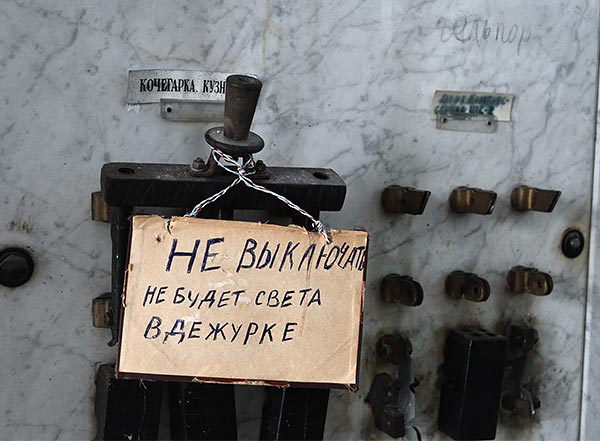 КОЧЕГАРКА. КУЗН
НЕ ВЫКЛЮЧАТЬ
НЕ БУДЕТ СВЕТА
В ДЕЖУРКЕ